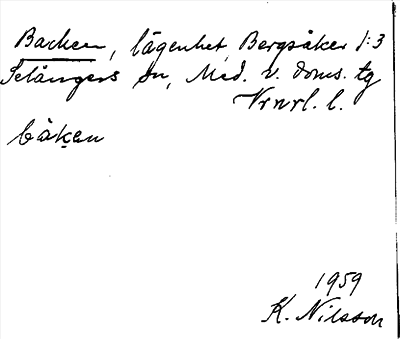 Backen, lägenhet, Bergsåker 1:3
Selångers sn, Med. v. doms. tg
Vrnrl. l.
bàk̬en
1959
K. Nilsson